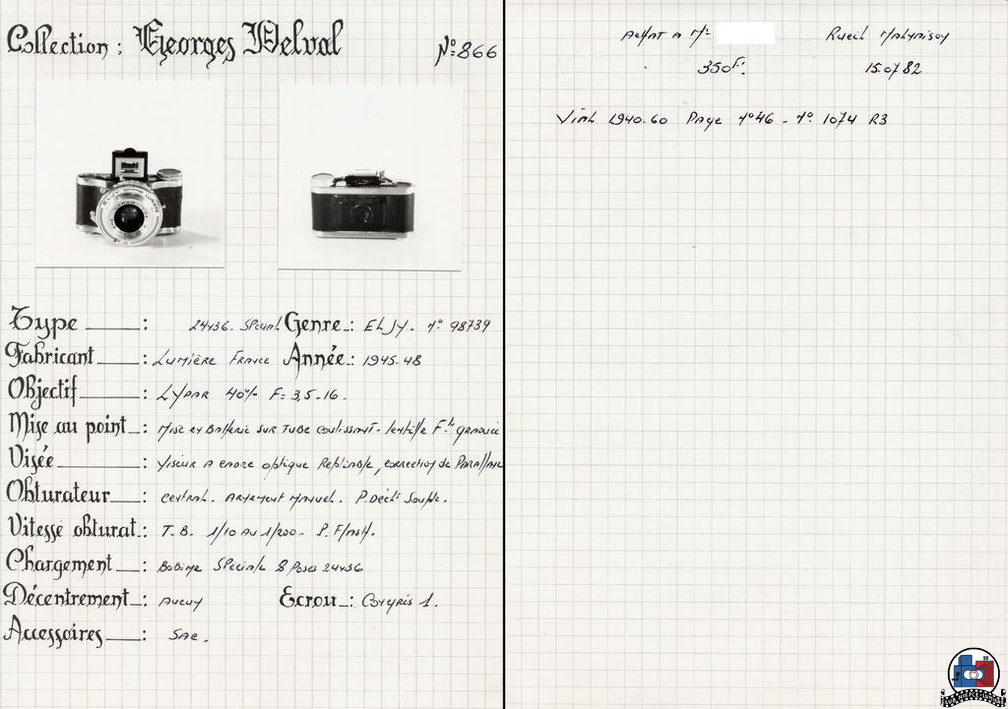 Collection : Georges Delval N°:866
Type : 24x36. Spécial Genre : ELJY. N° 98739
Fabricant : Lumière France Année : 1945.48
Objectif : Lypar 40% F= 3,5-16.
Mise au point : Mise en Batterie sur Tube coulissant. lentille F.te graduée
Visée : Viseur a cadre optique Repliable, correction de Parallaxe
Obturateur : Central. Armement Manuel. P. Décl. Souple.
Vitesse obturat. : T.B. 1/10 au 1/200 - P. Flash.
Chargement : Bobine Spéciale 8 Poses 24x36
Décentrement : Aucun Ecrou : Congrès 1.
Accessoires : Sac.
Achat a Mr Rueil Malmaison
350F. 15.07.82
Vial 1940.60 Page N°46 - N° 1074 R3